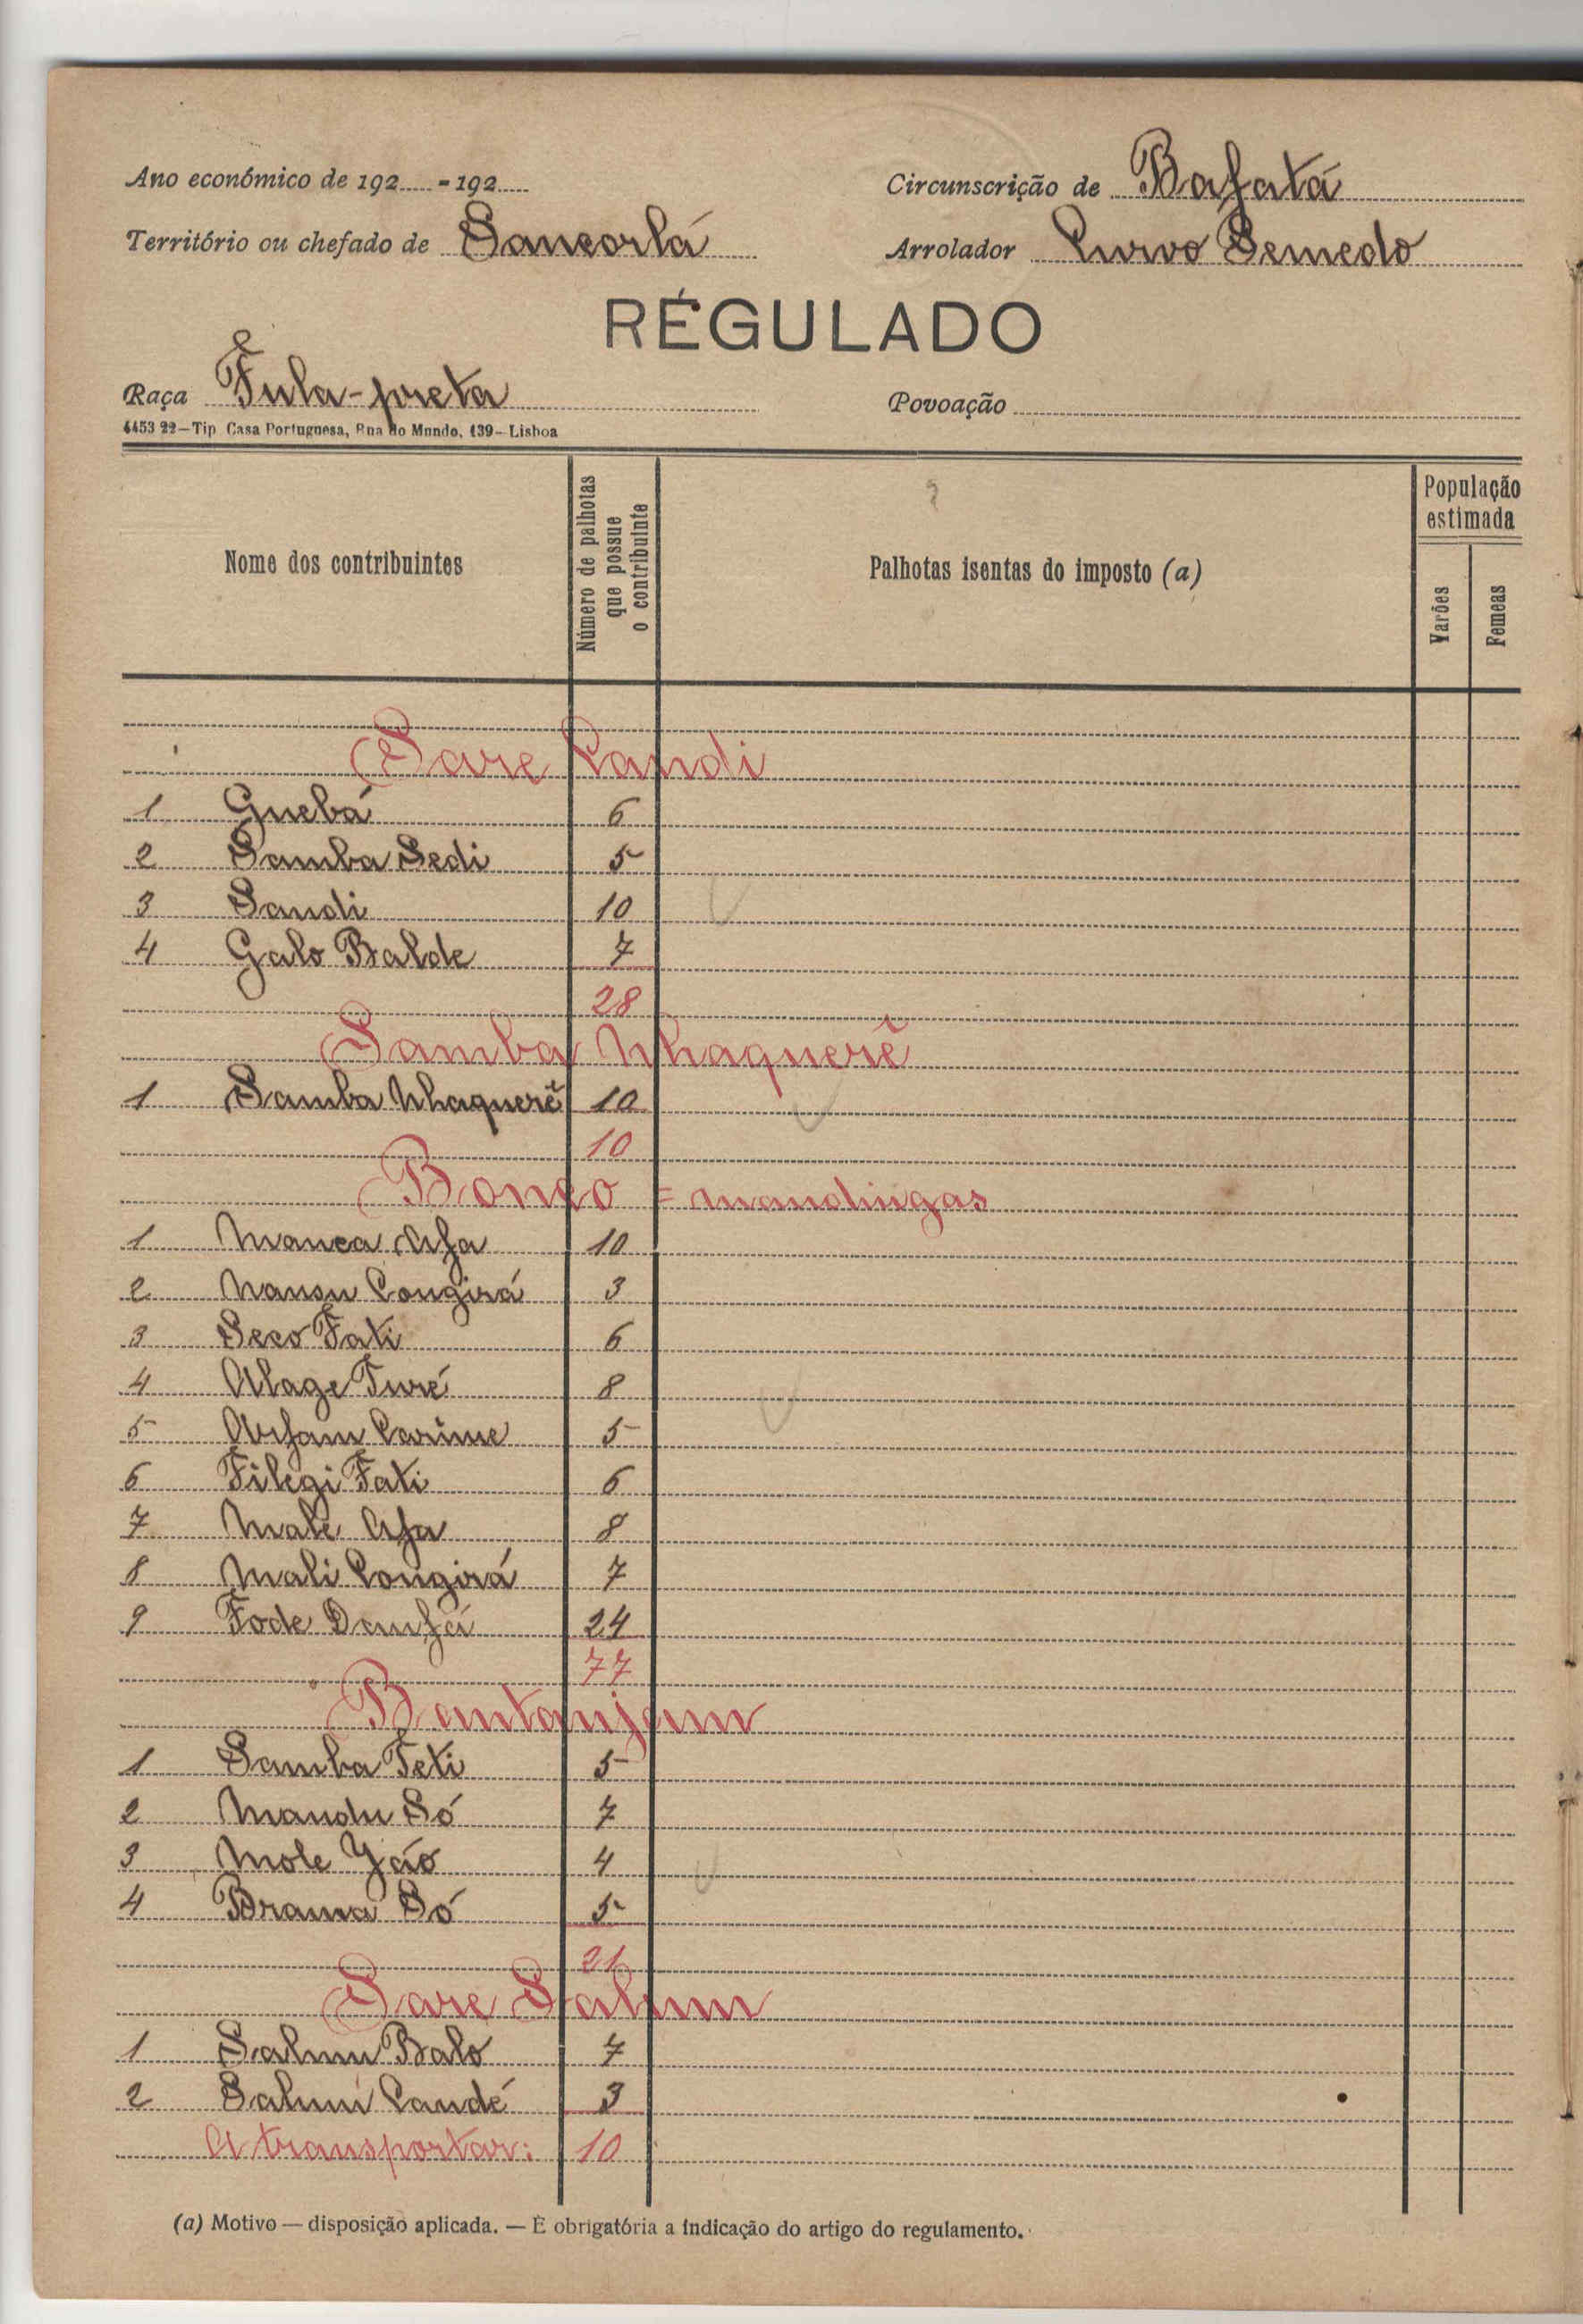 Ano económico de 192 - 192
Circunscrição de Bafatá
Território ou chefado de Sancorlá
Arrolador Curvo Semedo
RÉGULADO
Raça Fula-preta
Povoação
4453 22—Tip Casa Portuguesa, Rua do Mundo, 139—Lisboa
Nome dos contribuintes
Número de palhotas que possue o contribuinte
Palhotas isentas do imposto (a)
População estimada
Varões
Femeas
Sare Candi
1 Guebá 6
2 Samba Sedi 5
3 Sandi 10
4 Galo Balde 7
28
Samba Nhaquerê
1 Samba Nhaquerê 10
10
Bonco = mandingas
1 Manca Afa 10
2 Nansu Congirá 3
3 Seco Fati 6
4 Alage Turé 8
5 Arfam Carime 5
6 Filegi Fati 6
7 Male Afa 8
8 Mali Congirá 7
9 Fode Danfá 24
77
Bantanjam
1 Samba Teti 5
2 Mandu Só 7
3 Mole Gáo 4
4 Brama Só 5
21
Sare Salum
1 Salum Balo 7
2 Salum Candé 3
A transportar: 10
(a) Motivo — disposição aplicada. — É obrigatória a indicação do artigo do regulamento.